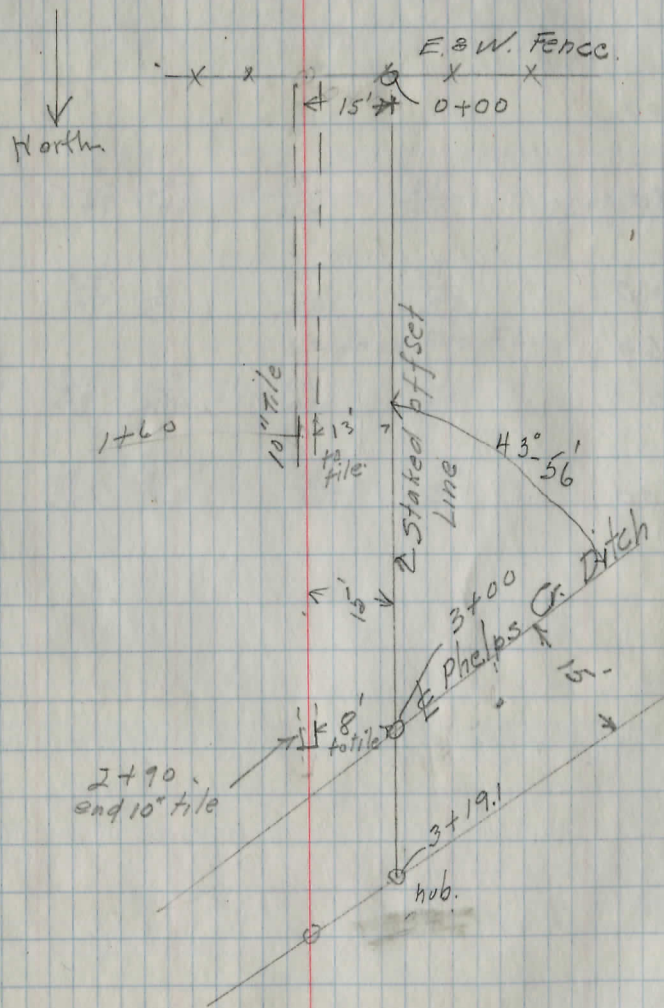 E. & W. Fence.
15'
0+00
North
10" Tile
1+60
13'
to
tile.
Staked offset
Line
43°-56'
15'
3+00
℄ Phelps Cr. Ditch
15-
8'
to tile
2+90
end 10" tile
3+19.1
hub.